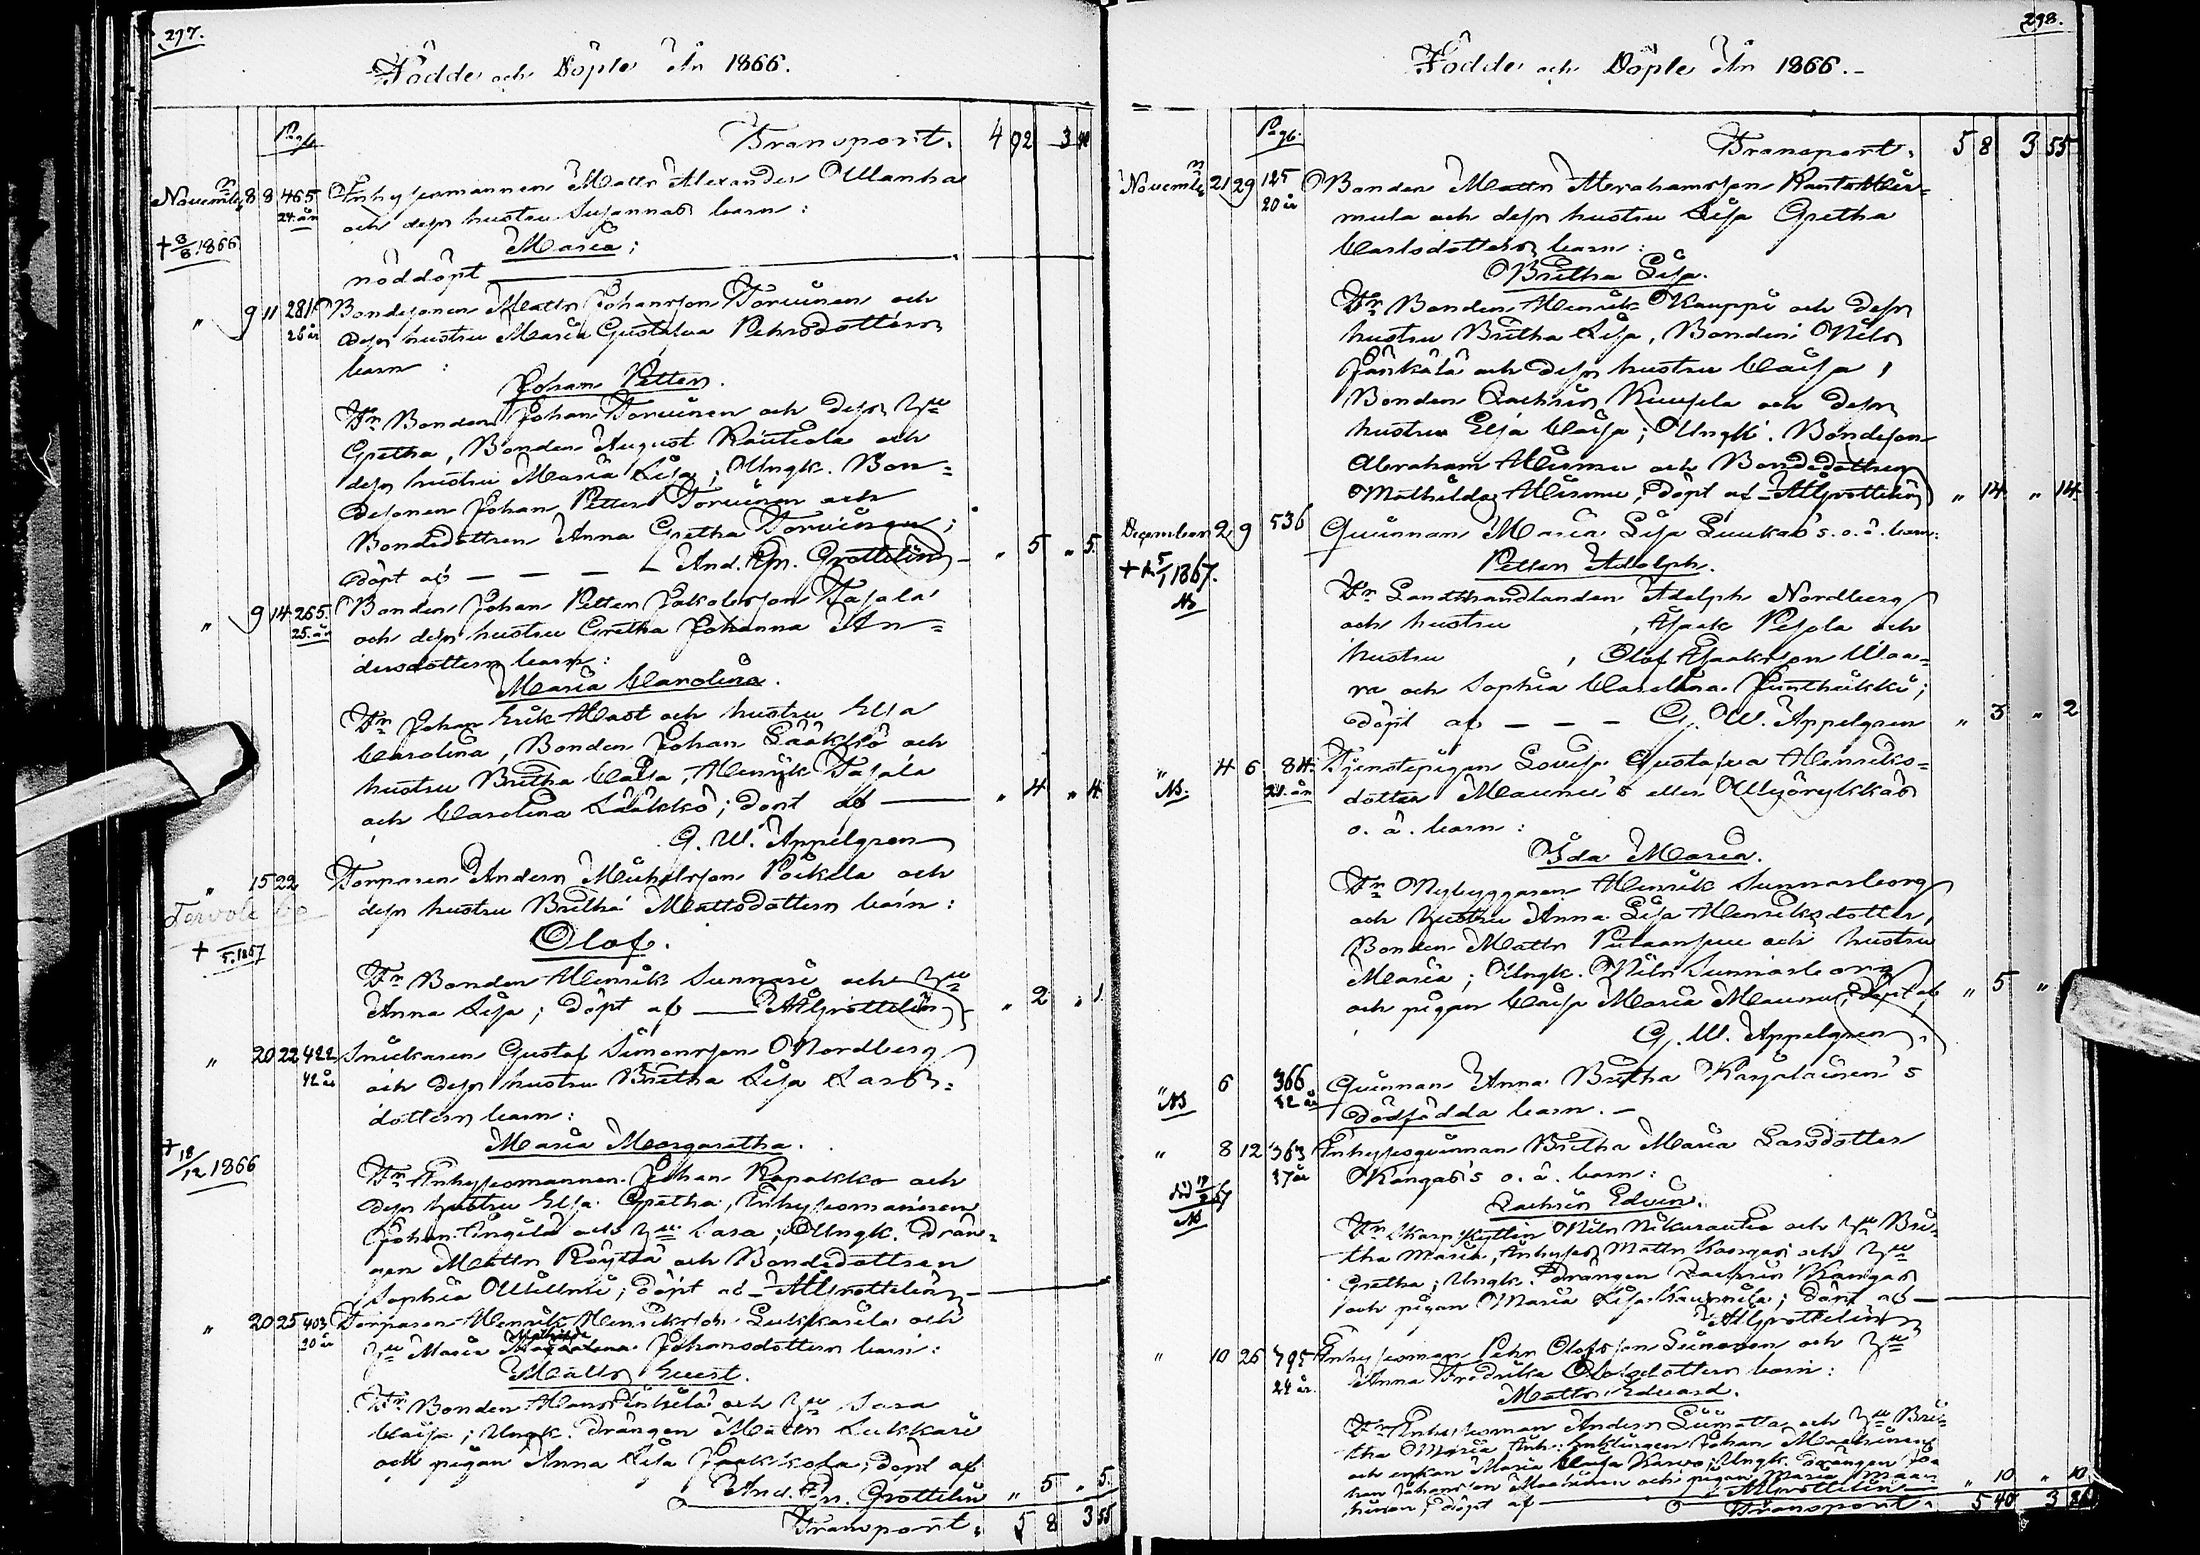 297.
Födde och Döpte År 1866.
Pag.
Transport. 4 92 3 40
Novemb. 8 8 465 Inhysesmannen Matts Alexander Ulanka
24 år och dess hustru Susannas barn:
+ 8/8 1866 Maria;
nöddöpt
" 9 11 281 Bondesonen Matts Johansson Torvinen och
26 år dess hustru Maria Gustava Pehrsdotters
barn:
Johan Petter.
Fr Bonden Johan Torvinen och dess Hu
Gretha, Bonden August Rautiola och
dess hustru Maria Lisa; Ungk. Bon=
desonen Johan Petter Torvinen och
Bondedottren Anna Gretha Torvinen;
döpt af — — — And. Joh. Grottelin " 5 " 5
" 9 14 265. Bonden Johan Petter Jakobsson Tasala
25 år och dess hustru Gretha Johanna An=
dersdotters barn:
Maria Carolina.
Fr Johan Erik Hast och hustru Elsa
Carolina, Bonden Johan Lääkkö och
hustru Britha Caisa, Henrik Tasala
och Carolina Lääkkö; döpt af — " 4 " 4
G. W. Appelgren
" 15 22 Torparen Anders Michelsson Poikela och
Tervola
dess hustru Britha Mattsdotters barn:
Olof.
+ 1867
Fr Bonden Henrik Sunnari och Hu
Anna Lisa; döpt af — AHGrottelin " 2 " 1
" 20 22 422 Snickaren Gustaf Simonsson Nordberg
42 år och dess hustru Britha Lisa Lars=
dotters barn:
Maria Margaretha.
+ 18/12 1866
Fr Inhysesmannen Johan Rapakko och
dess hustru Elsa Gretha, Inhysesmannen
Johan Ångila och Hu Sara; Ungk. drän=
gen Matts Röyttä och Bondedottren
Sophia; döpt af — AHGrottelin
" 20 25 403 Torparen Henrik Henriksson Lukkarila och
30 år Hu Maria Mathilda Johansdotters barn:
Matts Ernst.
Fr Bonden Hans och Hu Sara
Caisa; Ungk. drängen Matts Lukkari
och pigan Anna Lisa Jaakkola; döpt af
And. Joh. Grottelin " 5 " 5
Transport. 5 8 3 55
298.
Födde och Döpte År 1866.
Pag.
Transport. 5 8 3 55
Novemb. 21 29 125 Bonden Matts Abrahamsson Rantakur=
20 år mula och dess hustru Lisa Gretha
Carlsdotters barn:
Britha Lisa.
Fr Bonden Henrik Kauppi och dess
hustru Britha Lisa, Bonden Nils
Jänkälä och dess hustru Caisa,
Bonden Zachris och dess
hustru Elsa Caisa; Ungk. Bondeson
Abraham och Bondedottren
Mathilda; döpt af AHGrottelin " 14 " 14
December 2 9 536 Qvinnan Maria Lisa Luukas's o. ä. barn:
+ 5/1 1867. Petter Adolph.
NB
Fr Landthandlanden Adolph Nordberg
och hustru , Isaak Pesola och
hustru , Olof Isaaksson Waa=
ra och Sophia Carolina Junthikki;
döpt af — — — G. W. Appelgren " 3 " 2
" 4 6 84. Tjenstepigan Lovisa Gustava Henriks=
NB. 21 år dotter Maunu's eller Myörykkäs
o. ä. barn:
Ida Maria.
Fr Nybyggaren Henrik Sunnarborg
och hustru Anna Lisa Henriksdotter,
Bonden Matts Putaansuu och hustru
Maria; Ungk. Nils Sunnarborg
och pigan Caisa Maria Maunu; döpt af " 5 "
G. W. Appelgren
" 6 366 Qvinnan Anna Britha Karjalainen's
NB 32 år dödfödda barn. —
" 8 12 363 Inhysesqvinnan Britha Maria Larsdotter
37 år Kangas's o. ä. barn:
NB
Zachris Edvin.
Fr Skarpskytten Nils och Hu Bri=
tha Maria, Inhyses Matts Kangas och Hu
Gretha; Ungk. drängen Zachris Kangas
och pigan Maria Lisa; döpt af —
AHGrottelin
" 10 26 395 Inhysesman Pehr Olofsson Leinonen och Hu
24 år. Anna Fredrika Olofsdotters barn:
Matts Edvard.
Fr Inhysesman Anders Liimatta och Hu Bri=
tha Maria, Inh. enklingen Johan Martinen
och enkan Maria Caisa; Ungk. drängen Jo=
han Johansson och pigan Maria
; döpt af — AHGrottelin " 10 " 10
Transport. 5 40 3